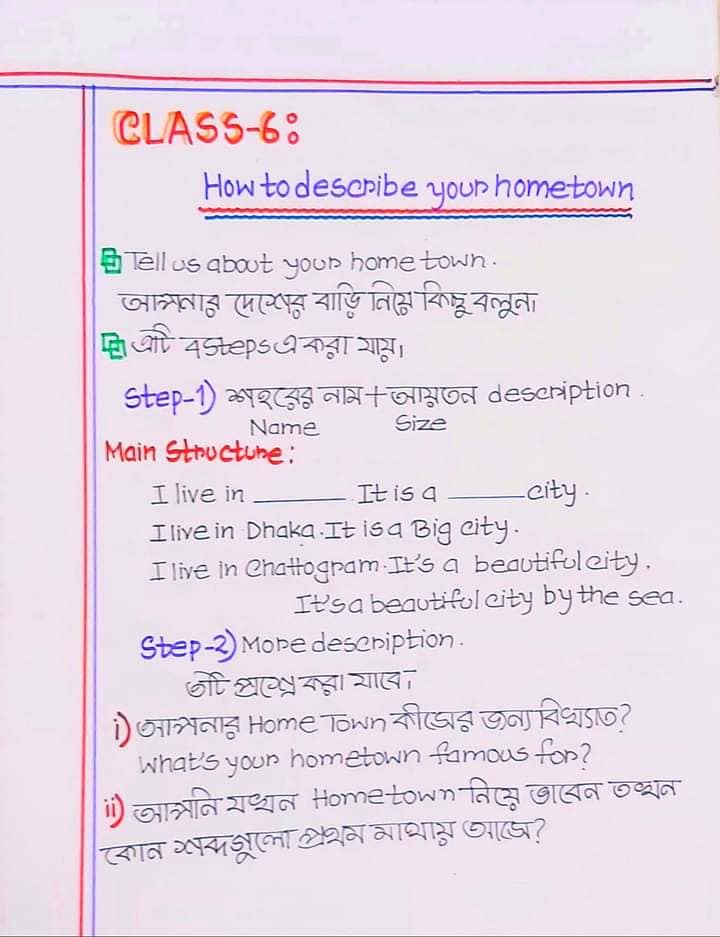 CLASS-6:
How to describe your hometown
Tell us about your home town.
আপনার দেশের বাড়ি নিয়ে কিছু বলুন।
এটি 4 steps এ করা যায়।
Step-1) শহরের নাম + আয়তন description.
Name Size
Main Structure:
I live in ______. It is a ______ city.
I live in Dhaka. It is a Big city.
I live in Chattogram. It's a beautiful city.
It's a beautiful city by the sea.
Step-2) More description.
৩টি প্রশ্নে করা যাবে।
i) আপনার Home Town কীসের জন্য বিখ্যাত?
What's your hometown famous for?
ii) আপনি যখন Hometown নিয়ে ভাবেন তখন
কোন শব্দগুলো প্রথম মাথায় আসে?